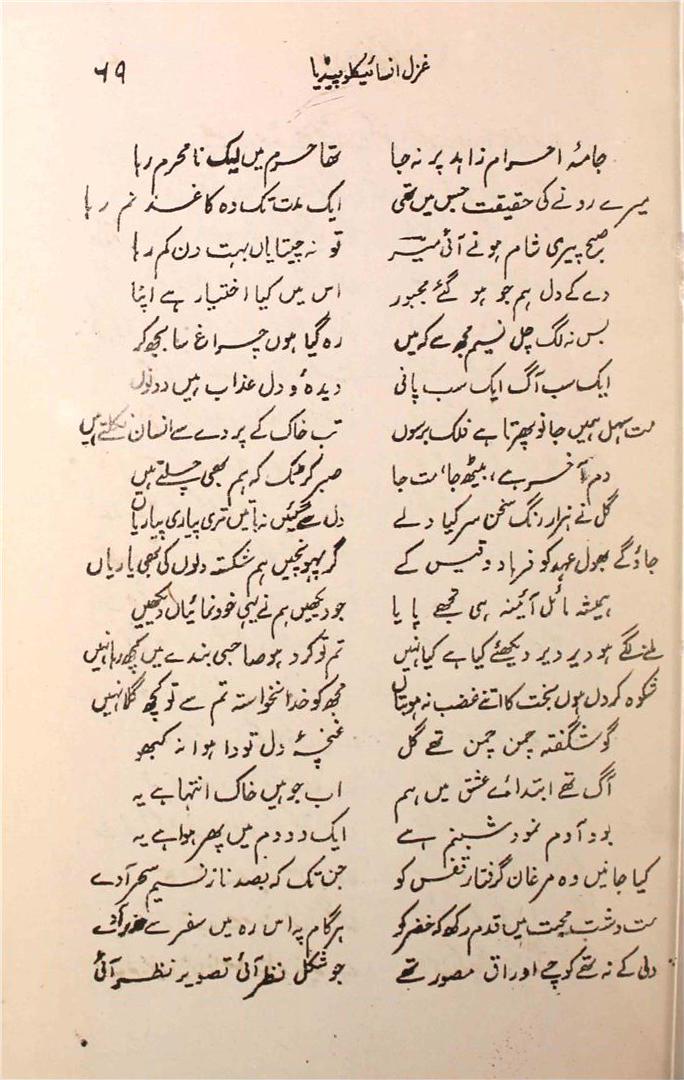 غزل انسائیکلوپیڈیا ۶۹
جامۂ احرام زاہد پر نہ جا تھا حرم میں لیک نا محرم رہا
میرے رونے کی حقیقت جس میں تھی ایک مدت تک وہ کاغذ نم رہا
صبح پیری شام ہونے آئی میرؔ تو نہ چیتا یاں بہت دن کم رہا
دے کے دل ہم جو ہو گئے مجبور اس میں کیا اختیار ہے اپنا
بس نہ لگ چل نسیم مجھ سے کہ میں رہ گیا ہوں چراغ سا بجھ کر
ایک سب آگ ایک سب پانی دیدہ و دل عذاب ہیں دونوں
مت سہل ہمیں جانو پھرتا ہے فلک برسوں تب خاک کے پردے سے انسان نکلتے ہیں
دم آخر ہے، بیٹھ جا، مت جا صبر کر ٹک کہ ہم بھی چلتے ہیں
گل نے ہزار رنگ سخن سر کیا ولے دل سے گئیں نہ باتیں تری پیاری پیاریاں
جاؤ گے بھول عہد کو فرہاد و قیس کے گر پہونچیں ہم شکستہ دلوں کی بھی یاریاں
ہمیشہ مائل آئینہ ہی تجھے پایا جو دیکھیں ہم نے یہی خود نمائیاں دیکھیں
ملنے لگے ہو دیر دیر دیکھئے کیا ہے کیا نہیں تم تو کرو ہو صاحبی بندے میں کچھ رہا نہیں
شکوہ کروں ہوں بخت کا اتنے غضب نہ ہو بتاں مجھ کو خدا نخواستہ تم سے تو کچھ گلا نہیں
گو شگفتہ چمن چمن تھے گل غنچۂ دل تو وا ہوا نہ کبھو
آگ تھے ابتدائے عشق میں ہم اب جو ہیں خاک انتہا ہے یہ
بود آدم نمود شبنم ہے ایک دو دم میں پھر ہوا ہے یہ
کیا جانیں وہ مرغان گرفتار قفس کو جن تک کہ بصد ناز نسیم سحر آوے
مت دشت محبت میں قدم رکھ کہ خضر کو ہر گام پہ اس رہ میں سفر سے حذر آوے
دلی کے نہ تھے کوچے اوراق مصور تھے جو شکل نظر آئی تصویر نظر آئی